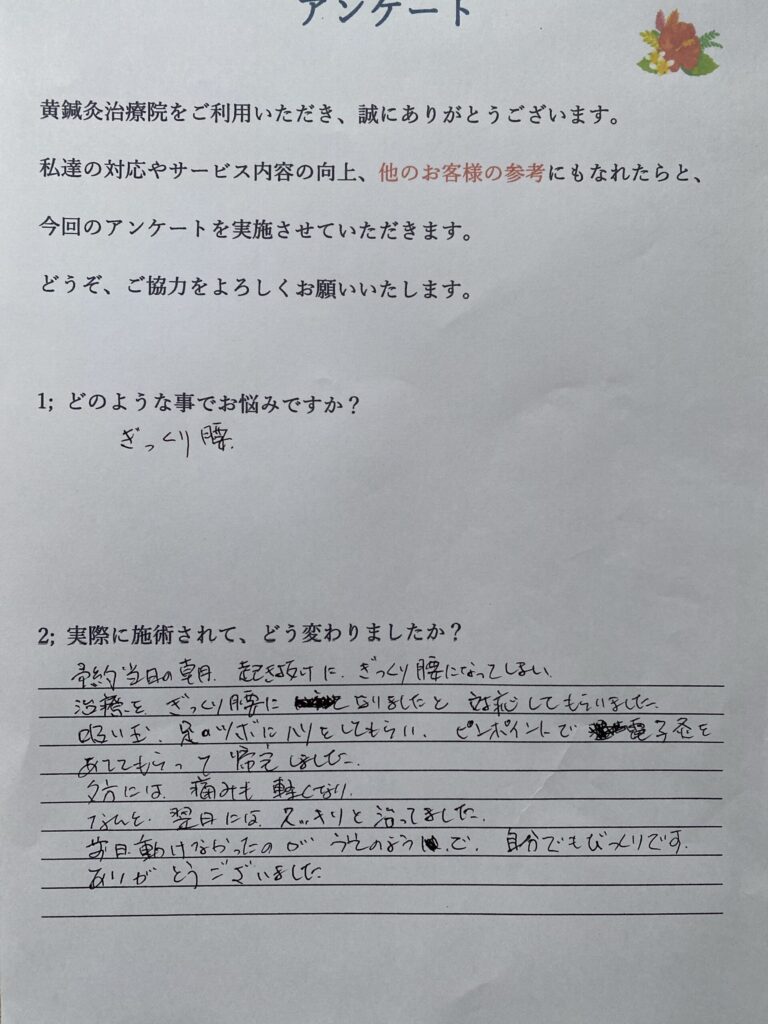 アンケート
黄鍼灸治療院をご利用いただき、誠にありがとうございます。
私達の対応やサービス内容の向上、他のお客様の参考にもなれたらと、
今回のアンケートを実施させていただきます。
どうぞ、ご協力をよろしくお願いいたします。
1; どのような事でお悩みですか？
ぎっくり腰
2; 実際に施術されて、どう変わりましたか？
予約当日の朝、起き抜けに、ぎっくり腰になってしまい、
治療を ぎっくり腰に なりましたと 対応してもらいました。
吸い玉、足のツボにハリをしてもらい、ピンポイントで 電子灸を
あててもらって 帰宅しました。
夕方には、痛みも 軽くなり、
なんと、翌日には、スッキリと 治ってました。
昨日動けなかったのが うそのようで、自分でもびっくりです。
ありがとうございました。